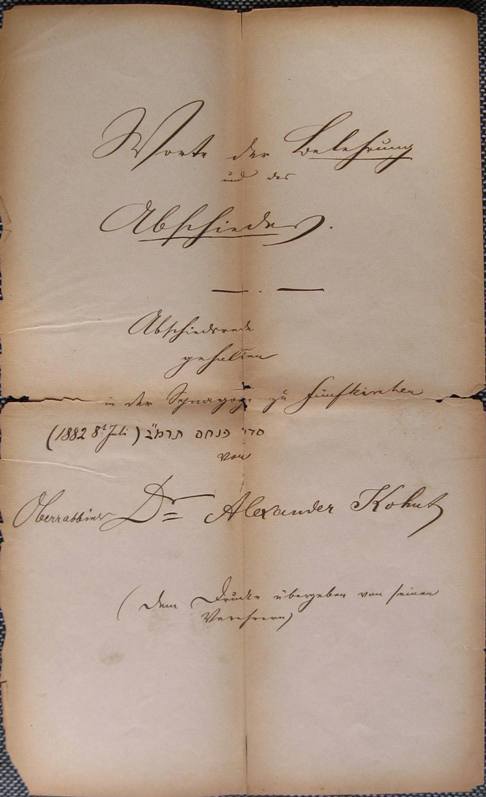 Worte der Belehrung
und des
Abschiedes.
Abschiedsrede
gehalten
in der Synagoge zu Fünfkirchen
(1882 8t Juli) סדר פנחס תרמ"ב
von
Oberrabbiner Dr Alexander Kohut
(Dem Drucke übergeben von seinen
Verehrern)